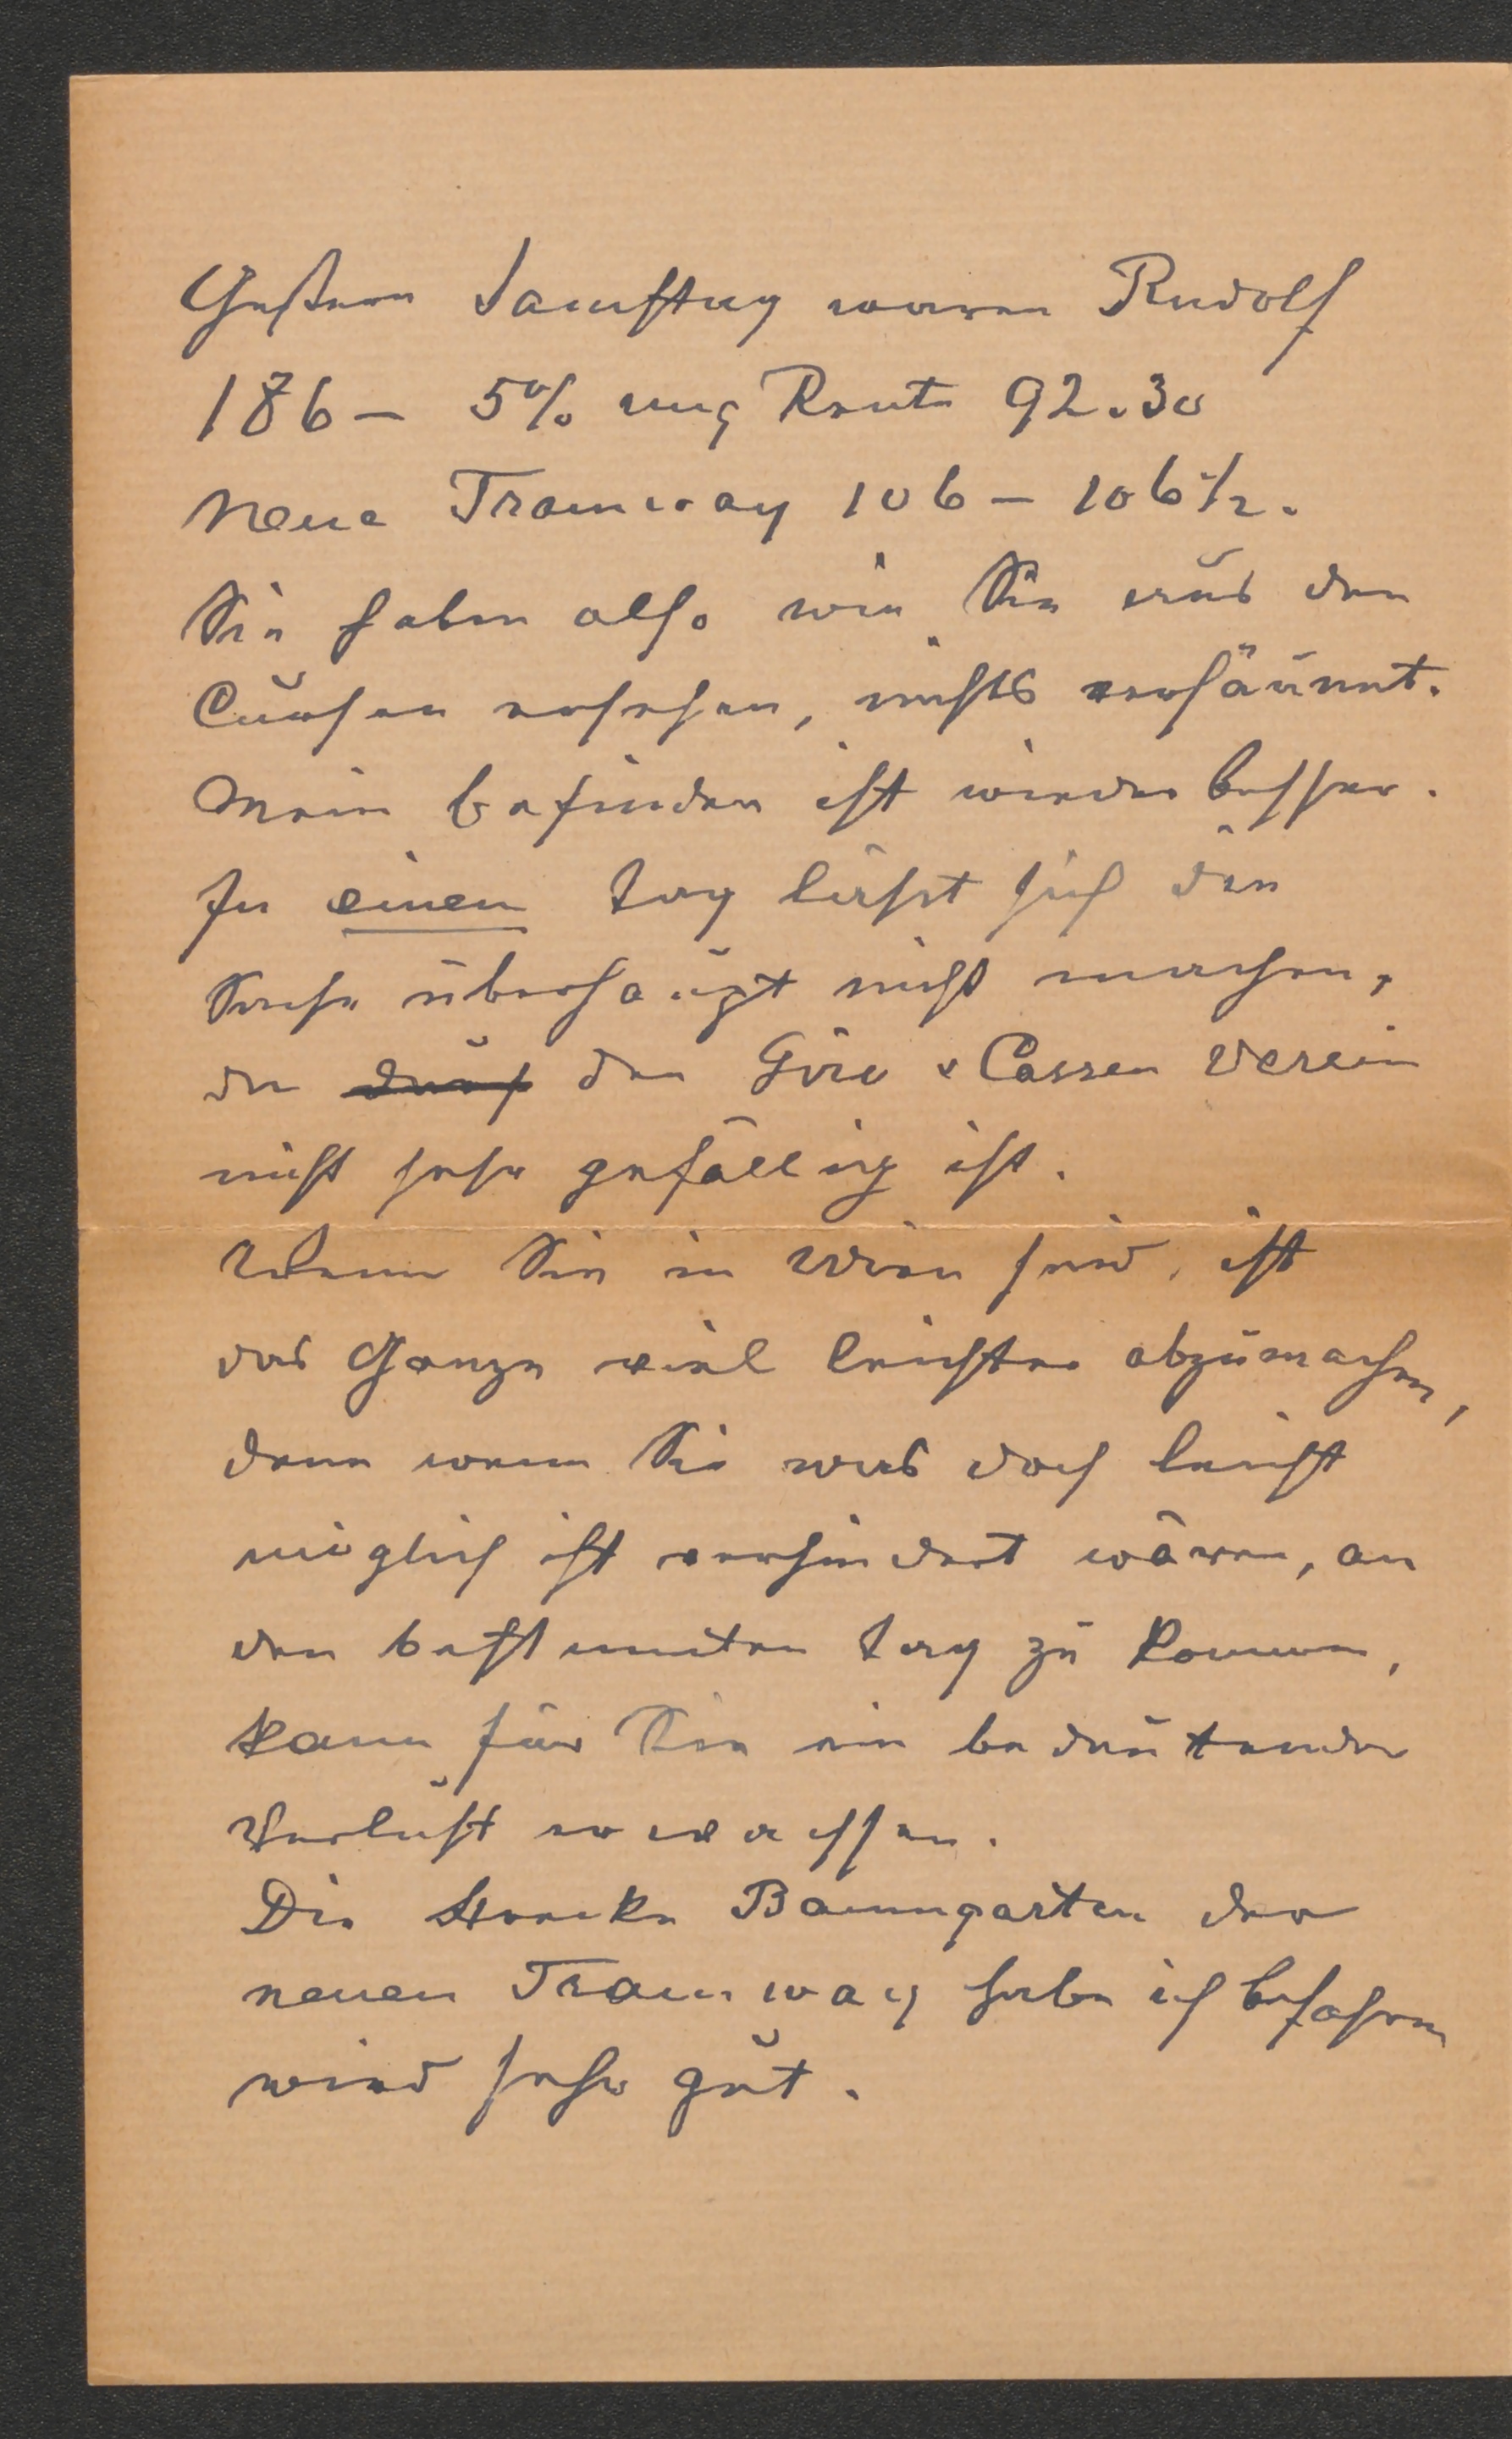 Gestern Samstag waren Rudolf
186 – 5% ung Rente 92.30
Neue Tramway 106 – 106 1/2.
Sie haben also wie Sie aus den
Cursen ersehen, nichts versäumt.
Mein befinden ist wieder besser.
In einen Tag läßt sich die
Sache überhaupt nicht machen,
da durch der Giro & Cassen Verein
nicht sehr gefällig ist.
Wenn Sie in Wien sind, ist
das Ganze viel leichter abzumachen,
denn wenn Sie was doch leicht
möglich ist verhindert wären, an
den bestimmten Tag zu kommen,
kann für Sie ein bedeutender
Verlust erwachsen.
Die Strecke Baumgarten der
neuen Tramway habe ich befahren
wird sehr gut.